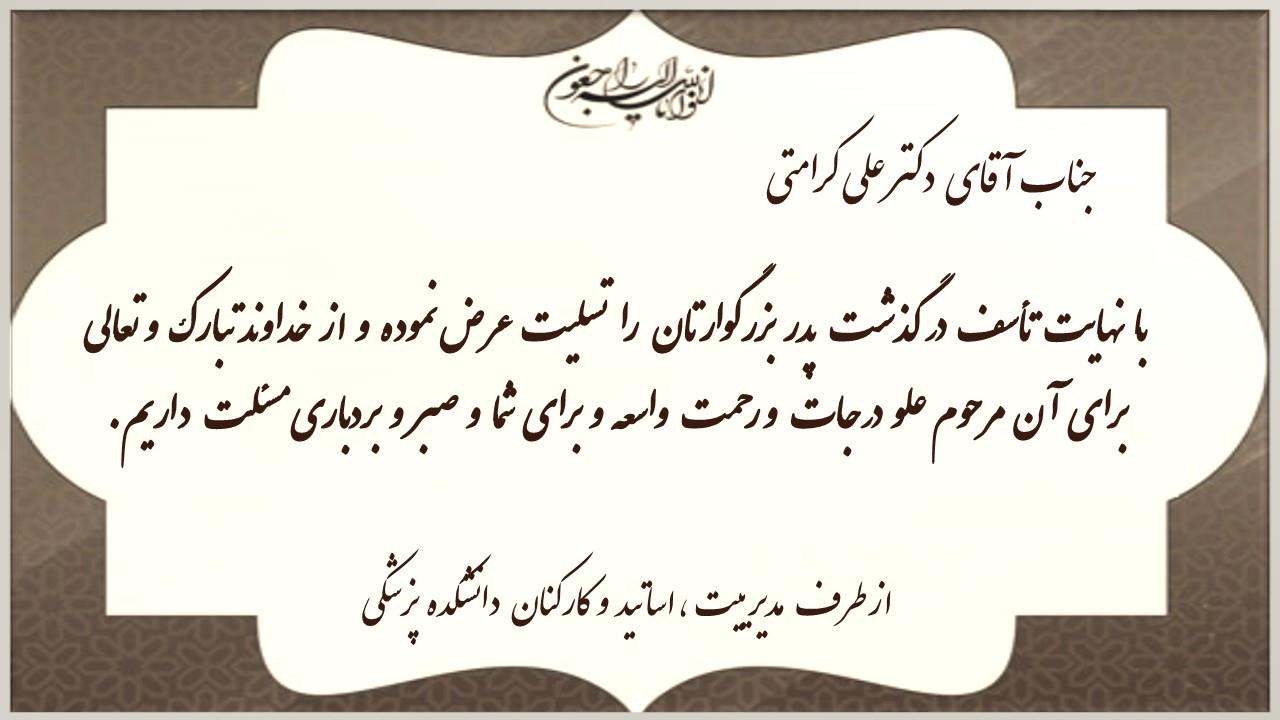 انا لله و انا الیه راجعون
جناب آقای دکتر علی کرامتی
با نهایت تأسف درگذشت پدر بزرگوارتان را تسلیت عرض نموده و از خداوند تبارک و تعالی
برای آن مرحوم علو درجات و رحمت واسعه و برای شما و صبر و بردباری مسئلت داریم.
از طرف مدیرییت ، اساتید و کارکنان دانشکده پزشکی